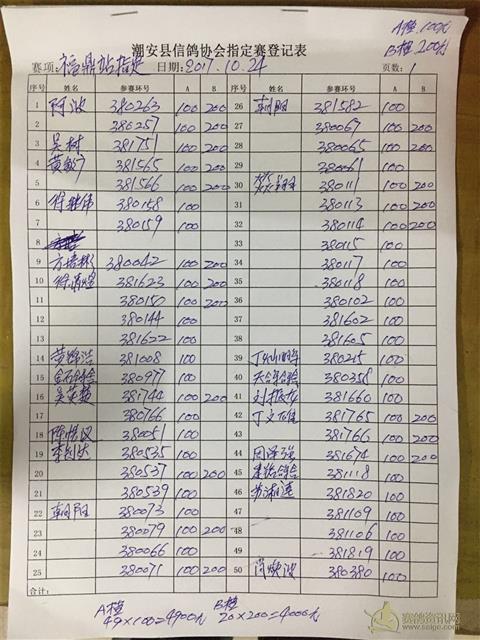 A檔100元
B檔200元
潮安县信鸽协会指定赛登记表
赛项:福鼎站指定 日期:2017.10.24 页数:1
序号 姓名 参赛环号 A B 序号 姓名 参赛环号 A B
1 阿波 380263 100 200 26 朝阳 381582 100
2 380257 100 200 27 380067 100 200
3 吴树 381751 100 200 28 380065 100 200
4 黄毅 381565 100 200 29 380061 100
5 381566 100 200 30 380111 100 200
6 380158 100 31 380113 100 200
7 380159 100 32 380114 100 200
8 33 380115 100
9 380042 100 200 34 380117 100
10 381623 100 200 35 380118 100
11 380150 100 200 36 380102 100
12 380144 100 37 381602 100
13 381622 100 38 381605 100
14 381008 100 39 380215 100
15 380977 100 40 380358 100
16 381744 100 200 41 381660 100
17 380766 100 42 丁文雄 381765 100 200
18 380051 100 43 381766 100 200
19 380535 100 44 周泽强 381674 100 200
20 380537 100 200 45 381118 100
21 380539 100 46 381820 100
22 朝阳 380073 100 47 381109 100
23 380079 100 200 48 381106 100
24 380066 100 49 381819 100
25 380071 100 200 50 380380 100
合计:
A檔 B檔
49×100=4900元 20×200=4000元
赛鸽资讯网
www.saige.com